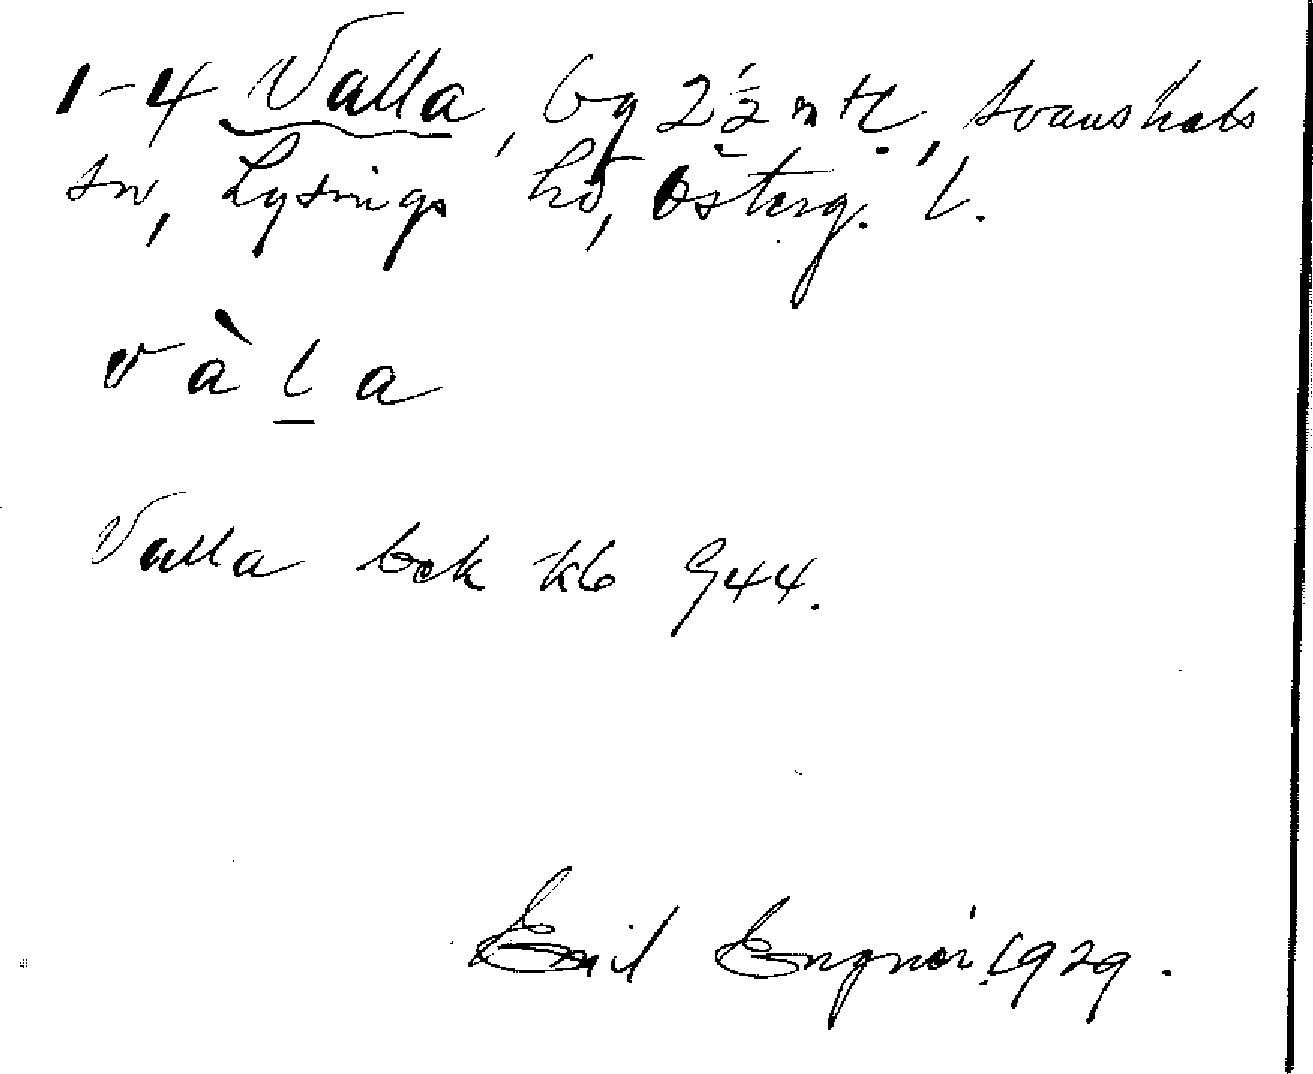 1-4 Valla, by 2 1/2 mtl, Svanshals
sn, Lysings hd, Österg. l.
v à l a
Valla bek kb 944.
Emil Engnér 1929.